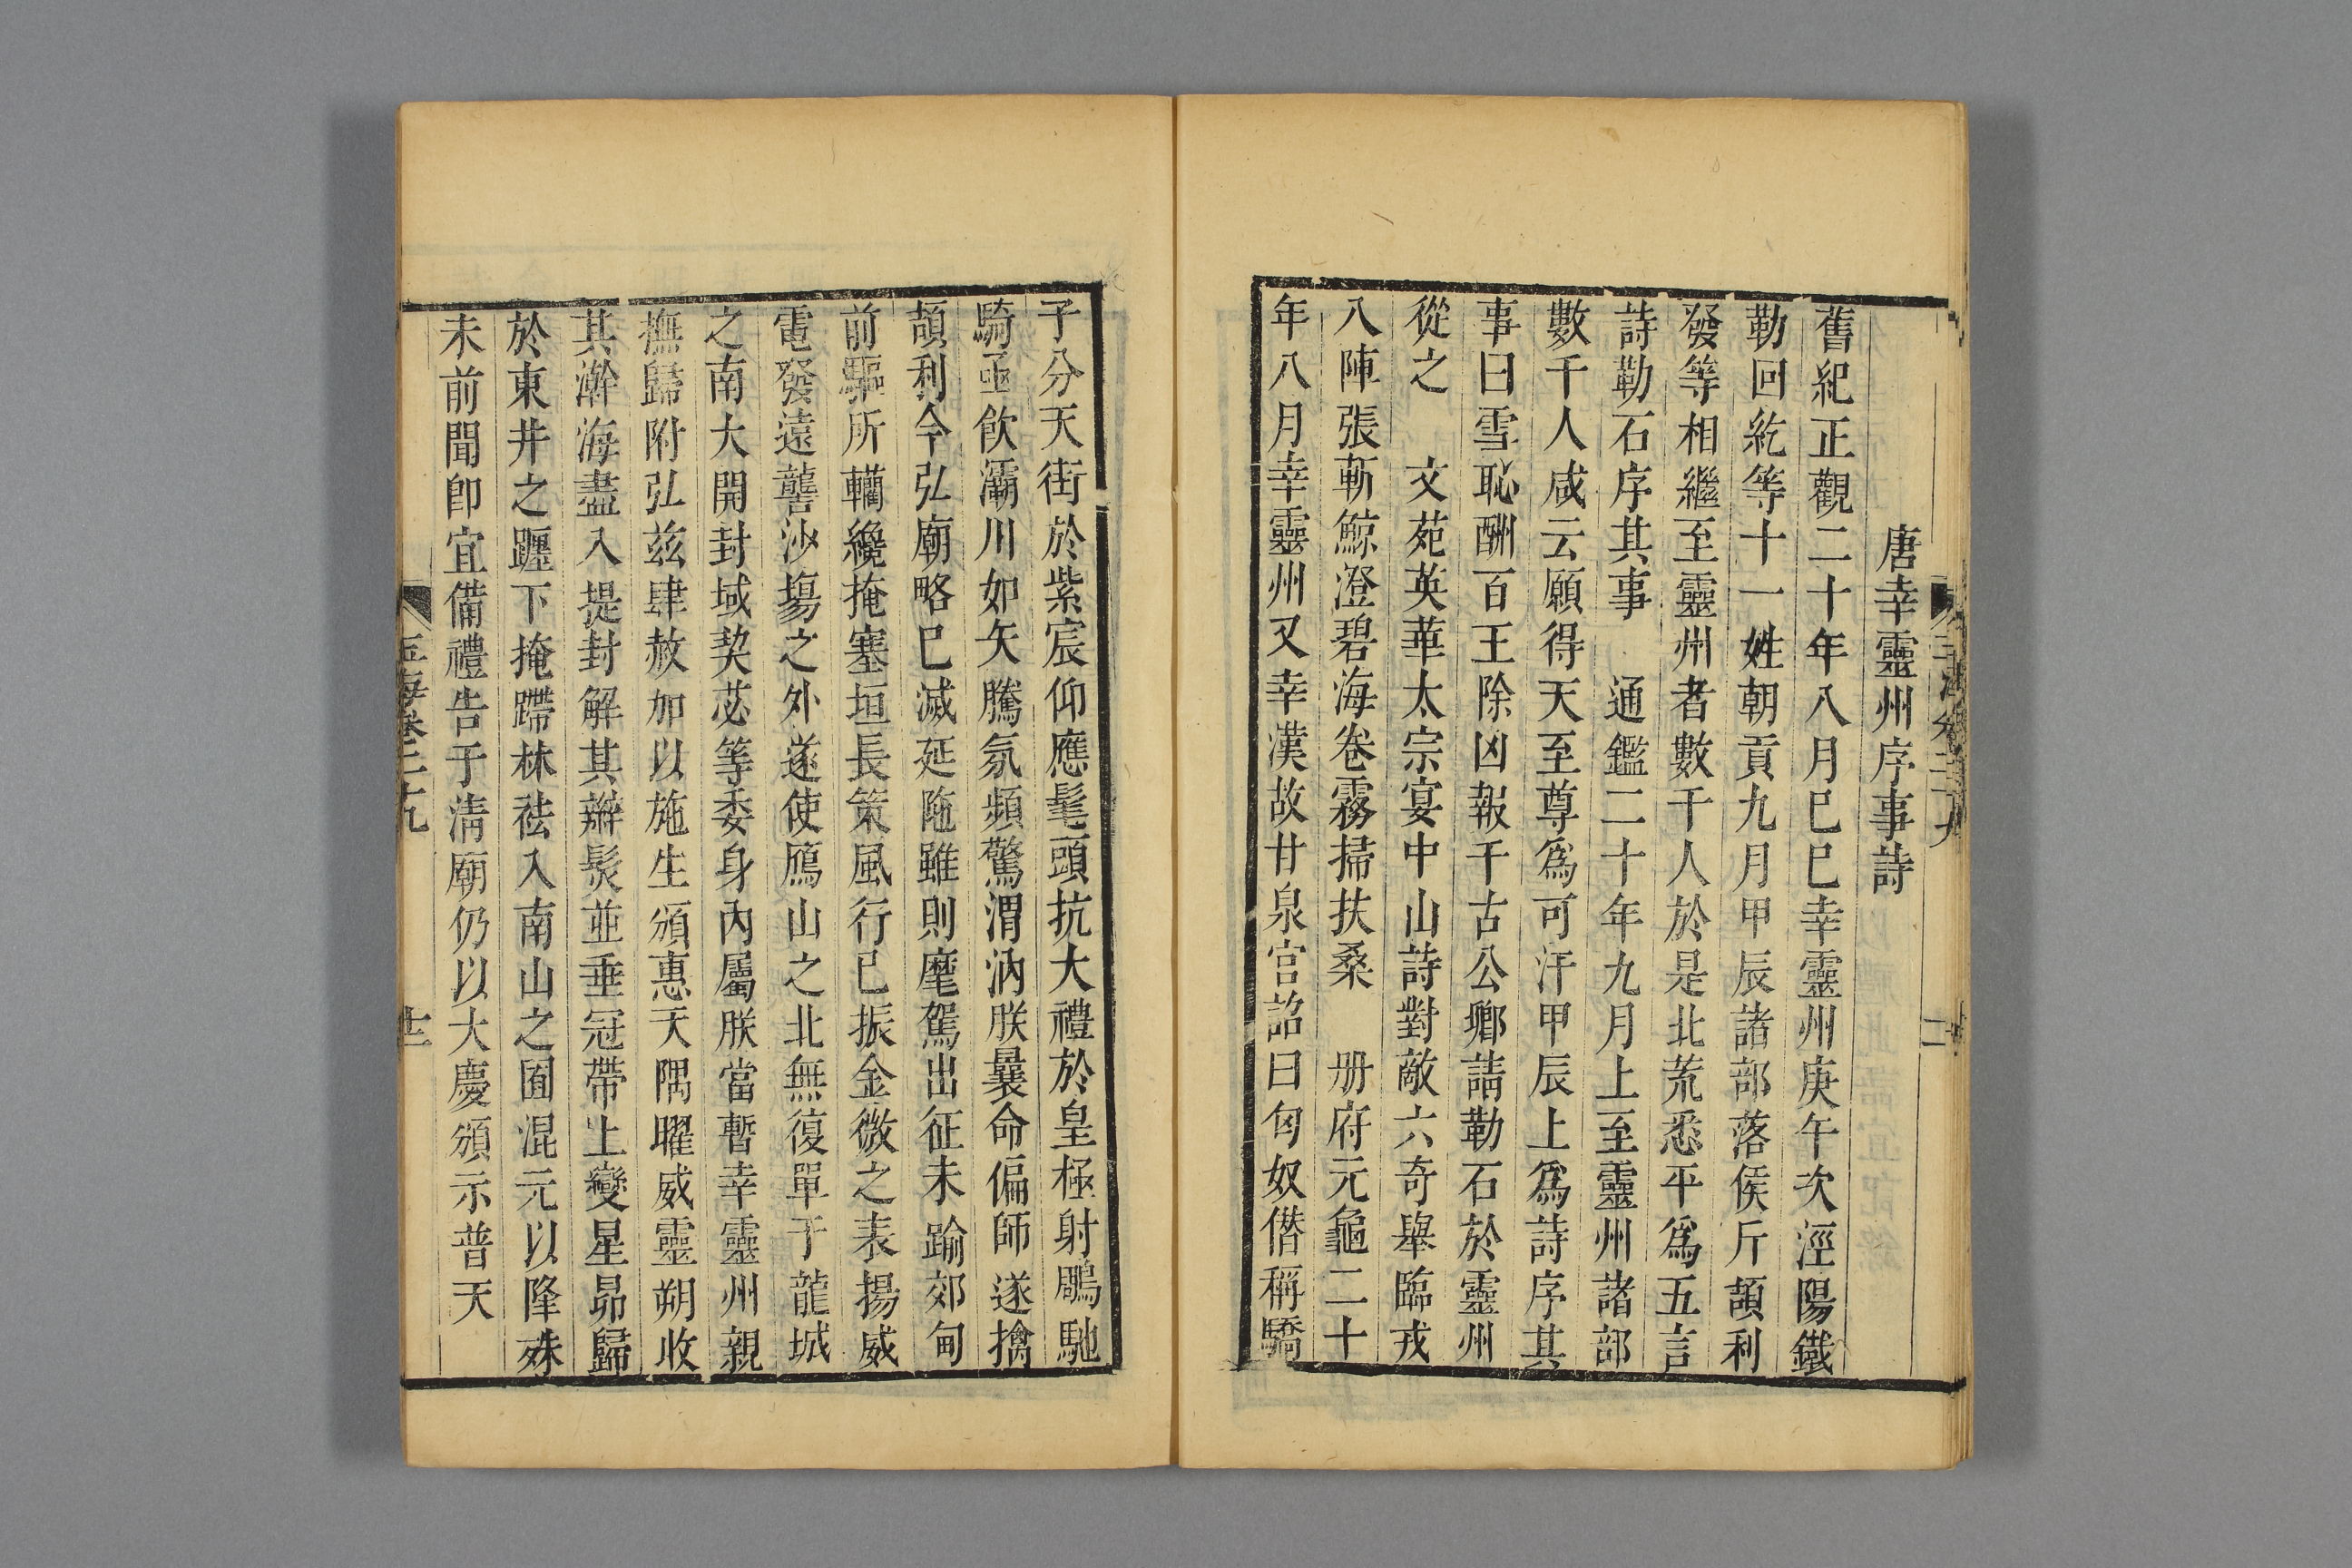 唐幸靈州序事詩
舊紀正觀二十年八月巳巳幸靈州庚午次涇陽鐵
勒回紇等十一姓朝貢九月甲辰諸部落俟斤頡利
發等相繼至靈州者數千人於是北荒悉平爲五言
詩勒石序其事 通鑑二十年九月上至靈州諸部
數千人咸云願得天至尊爲可汗甲辰上爲詩序其
事曰雪恥酬百王除凶報千古公鄉請勒石於靈州
從之 文苑英華太宗宴中山詩對敵六奇舉臨戎
八陣張斬鯨澄碧海卷霧掃扶桑 册府元龜二十
年八月幸靈州又幸漢故甘泉宮詔曰匈奴僭稱驕
子分天街於紫宸仰應髦頭抗大禮於皇極射鵰馳
騎亟飲灞川如矢騰氛頻驚渭汭朕曩命偏師遂擒
頡利今弘廟略巳滅延陁雖則麾駕出征未踰郊甸
前驅所轥纔掩塞垣長策風行已振金微之表揚威
電發遠讋沙場之外遂使鴈山之北無復單于龍城
之南大開封域契苾等委身內屬朕當暫幸靈州親
撫歸附弘兹肆赦加以施生頒惠天隅曜威靈朔收
其澣海盡入提封解其辮髮並垂冠帶上變星昴歸
於東井之躔下掩蹛林祛入南山之囿混元以降殊
未前聞卽宜備禮告于清廟仍以大慶頒示普天
玉海卷二十九